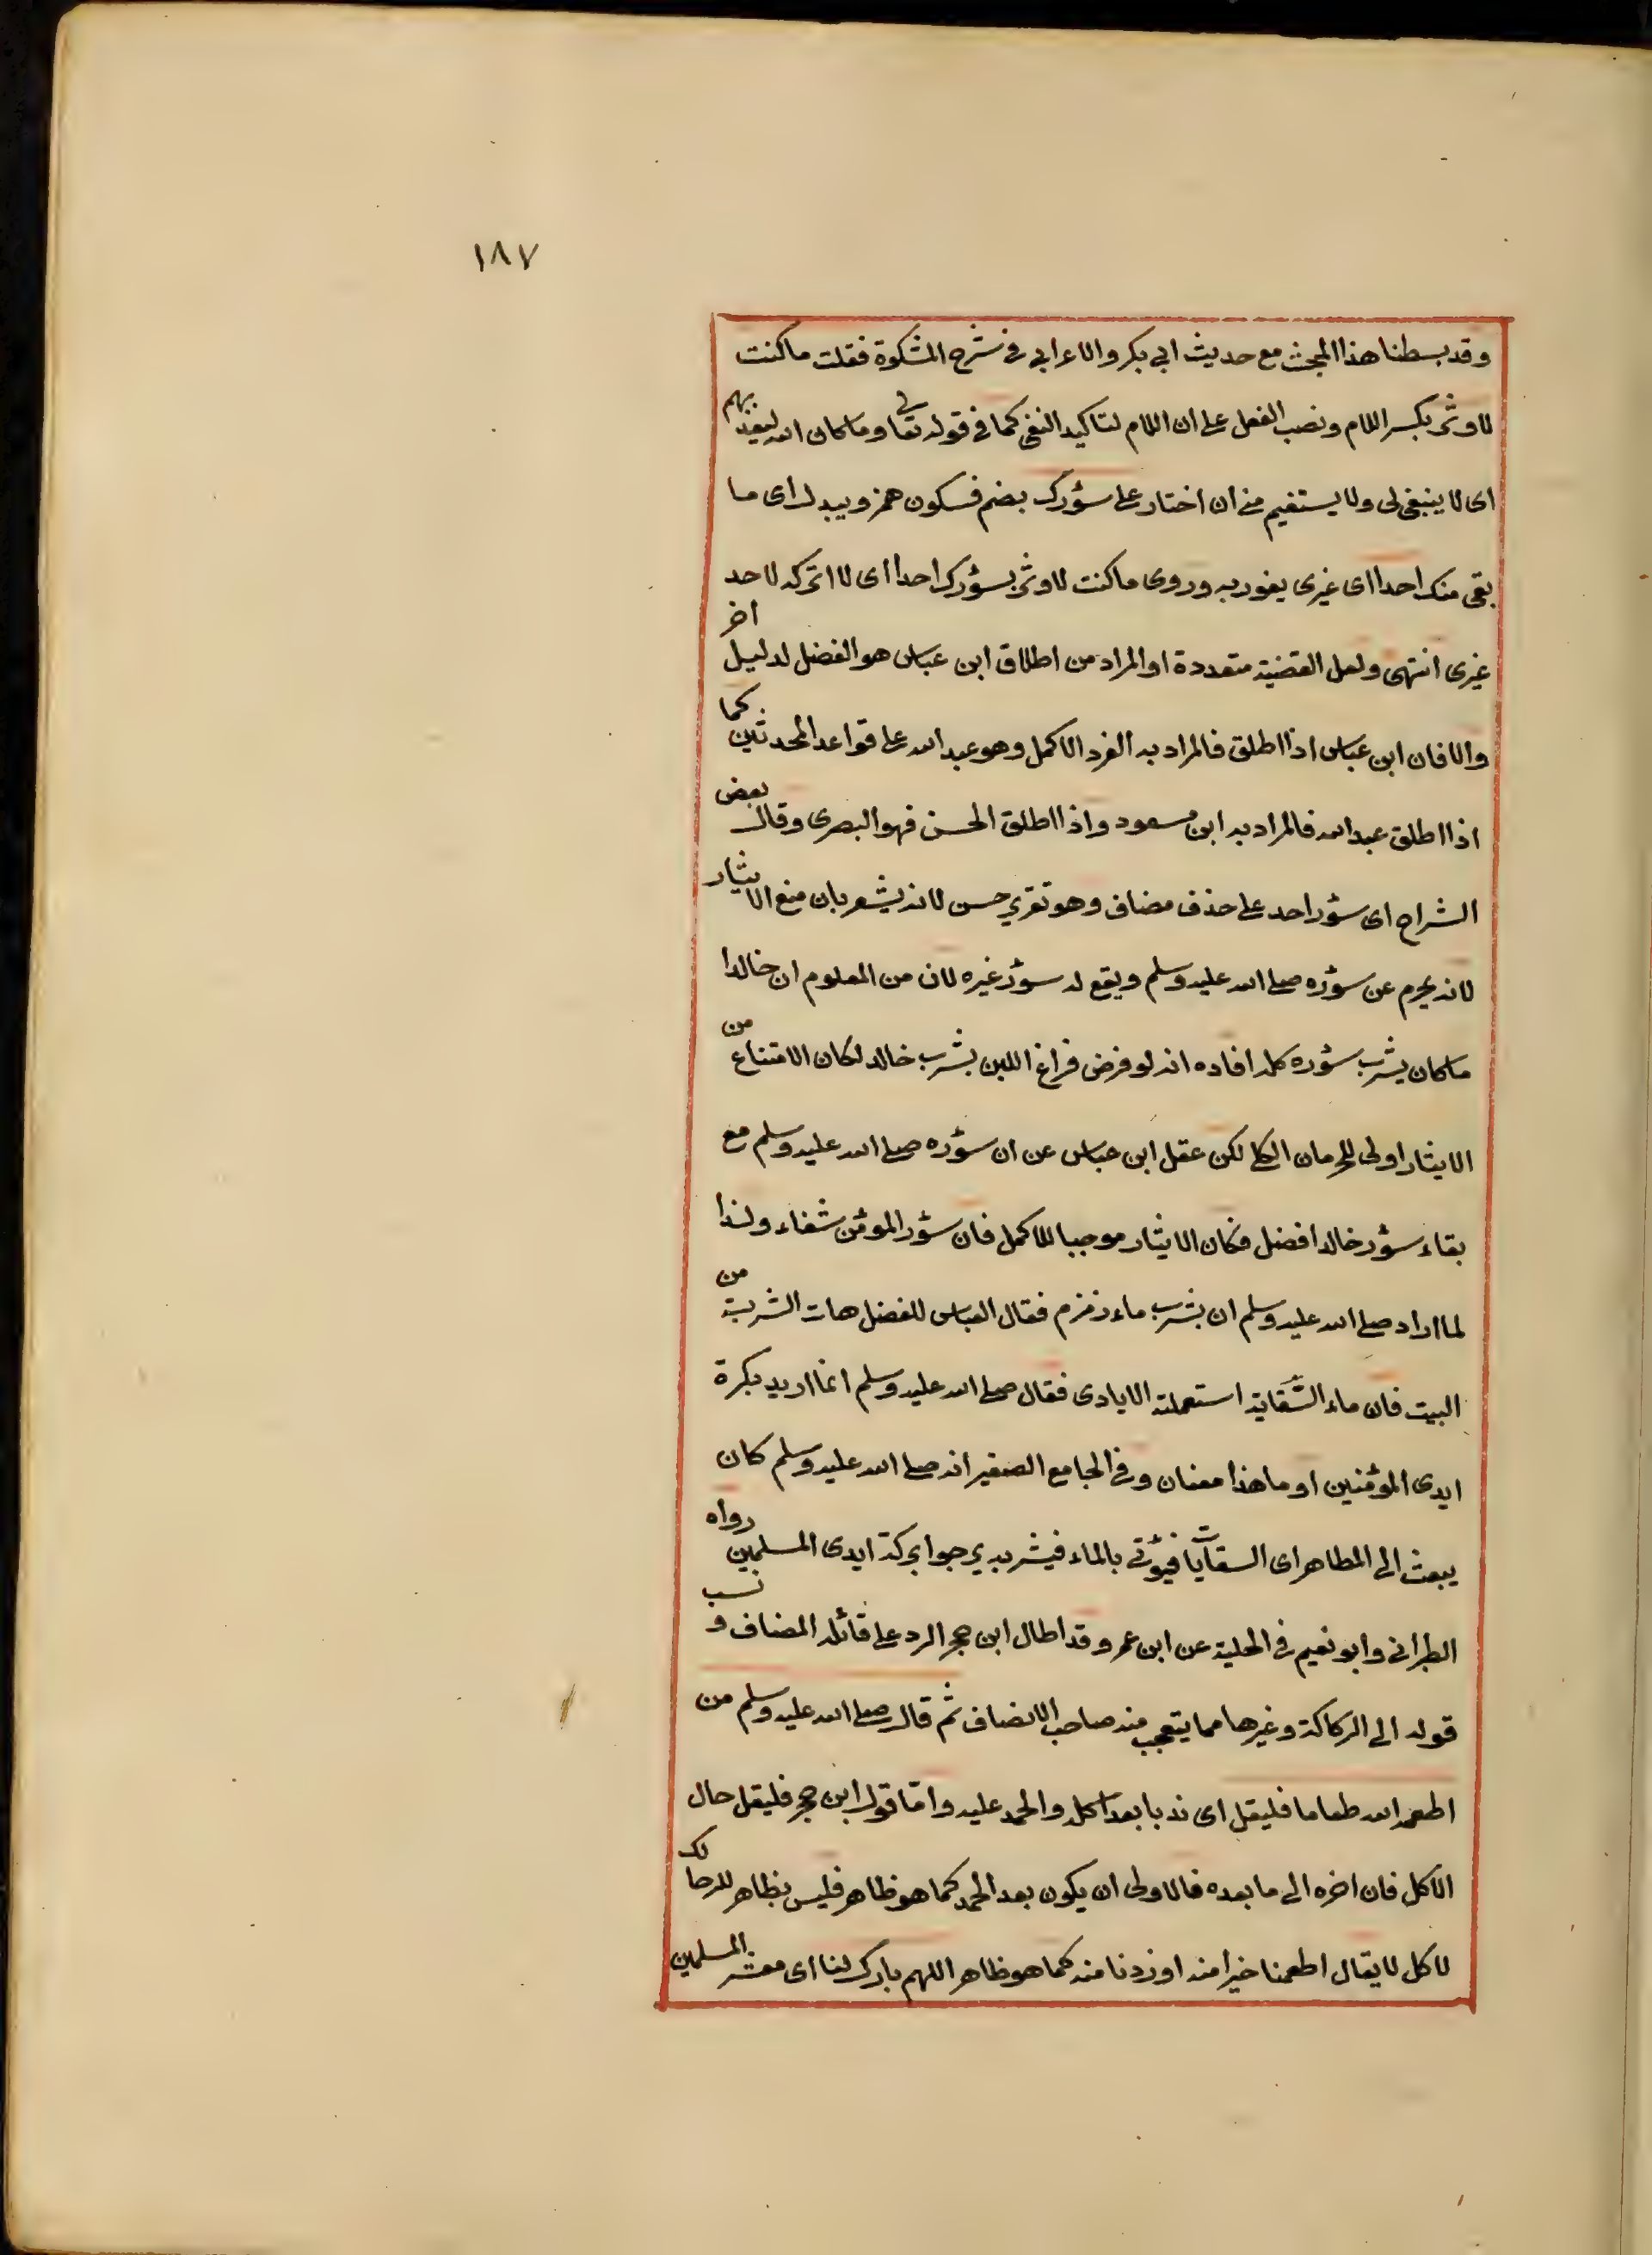 ١٨٧
وقد بسطنا هذا المبحث مع حديث ابي بكر والاعرابي في شرح المشكوة فقلت ما كنت
لاوثر بكسر اللام ونصب الفعل على ان اللام لتاكيد النفي كما في قوله تعالى وما كان الله ليعذبهم
اى لا ينبغى لى ولا يستقيم منى ان اختار على سؤرك بضم فسكون همز ويبدل اى ما
بقى منك احدا اى غيرى يفوز به وروى ما كنت لاوثر بسؤرك احدا اى لا اتركه لاحد
غيرى انتهى ولعل القضية متعددة او المراد من اطلاق ابن عباس هو الفضل لدليل اخر
والا فان ابن عباس اذا اطلق فالمراد به الفرد الاكمل وهو عبد الله على قواعد المحدثين كما
اذا اطلق عبد الله فالمراد به ابن مسعود واذا اطلق الحسن فهو البصرى وقال بعض
الشراح اى سؤر احد على حذف مضاف وهو تقرير حسن لانه يشعر بان منع الايثار
لانه يحرم عن سؤره صلى الله عليه وسلم ويقع له سؤر غيره لان من المعلوم ان خالدا
ما كان يشرب سؤره كله افاده انه لو فرض فراغ اللبن بشرب خالد لكان الامتناع من
الايثار اولى للحرمان الكلى لكن عقل ابن عباس عن ان سؤره صلى الله عليه وسلم مع
بقاء سؤر خالد افضل فكان الايثار موجبا للاكمل فان سؤر المومن شفاء ولذا
لما اراد صلى الله عليه وسلم ان يشرب ماء زمزم فقال العباس للفضل هات الشربة من
البيت فان ماء السقاية استعملته الايادى فقال صلى الله عليه وسلم انما اريد بكرة
ايدى المؤمنين او ما هذا معنان وفي الجامع الصغير انه صلى الله عليه وسلم كان
يبعث الى المطاهر اى السقايات فيؤتى بالماء فيشربه يرجوا بركة ايدى المسلمين رواه
الطبرانى وابو نعيم في الحلية عن ابن عمر وقد اطال ابن حجر الرد على قائله المضاف و نسب
قوله الى الركاكة وغيرها مما يتعجب منه صاحب الانصاف ثم قال صلى الله عليه وسلم من
اطعمه الله طعاما فليقل اى ندبا بعد اكله والحمد عليه واما قول ابن حجر فليقل حال
الاكل فان اخره الى ما بعده فالاولى ان يكون بعد الحمد كما هو ظاهر فليس بظاهر للرحالك
لاكل لا يقال اطعمنا خيرا منه او زدنا منه كما هو ظاهر اللهم بارك لنا اى معشر المسلمين